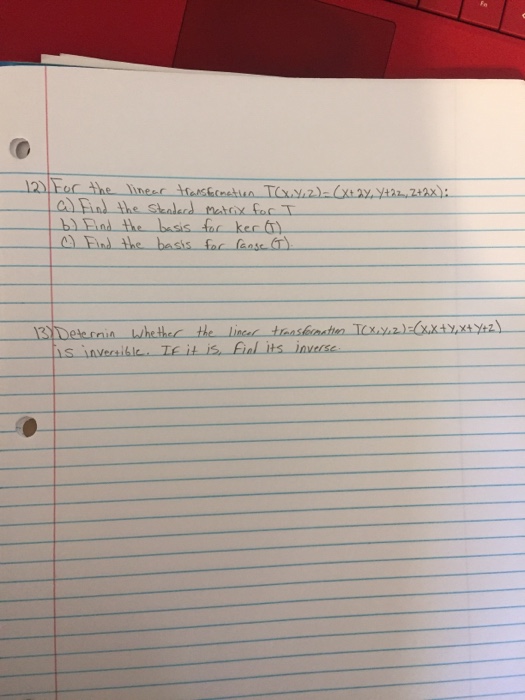 12) For the linear transformation T(x,y,z)=(x+2y, y+2z, z+2x):
a) Find the standard matrix for T
b) Find the basis for ker (T)
c) Find the basis for range (T).
13) Determin whether the linear transformation T(x,y,z)=(x,x+y,x+y+z)
is invertible. If it is, find its inverse.
Fn